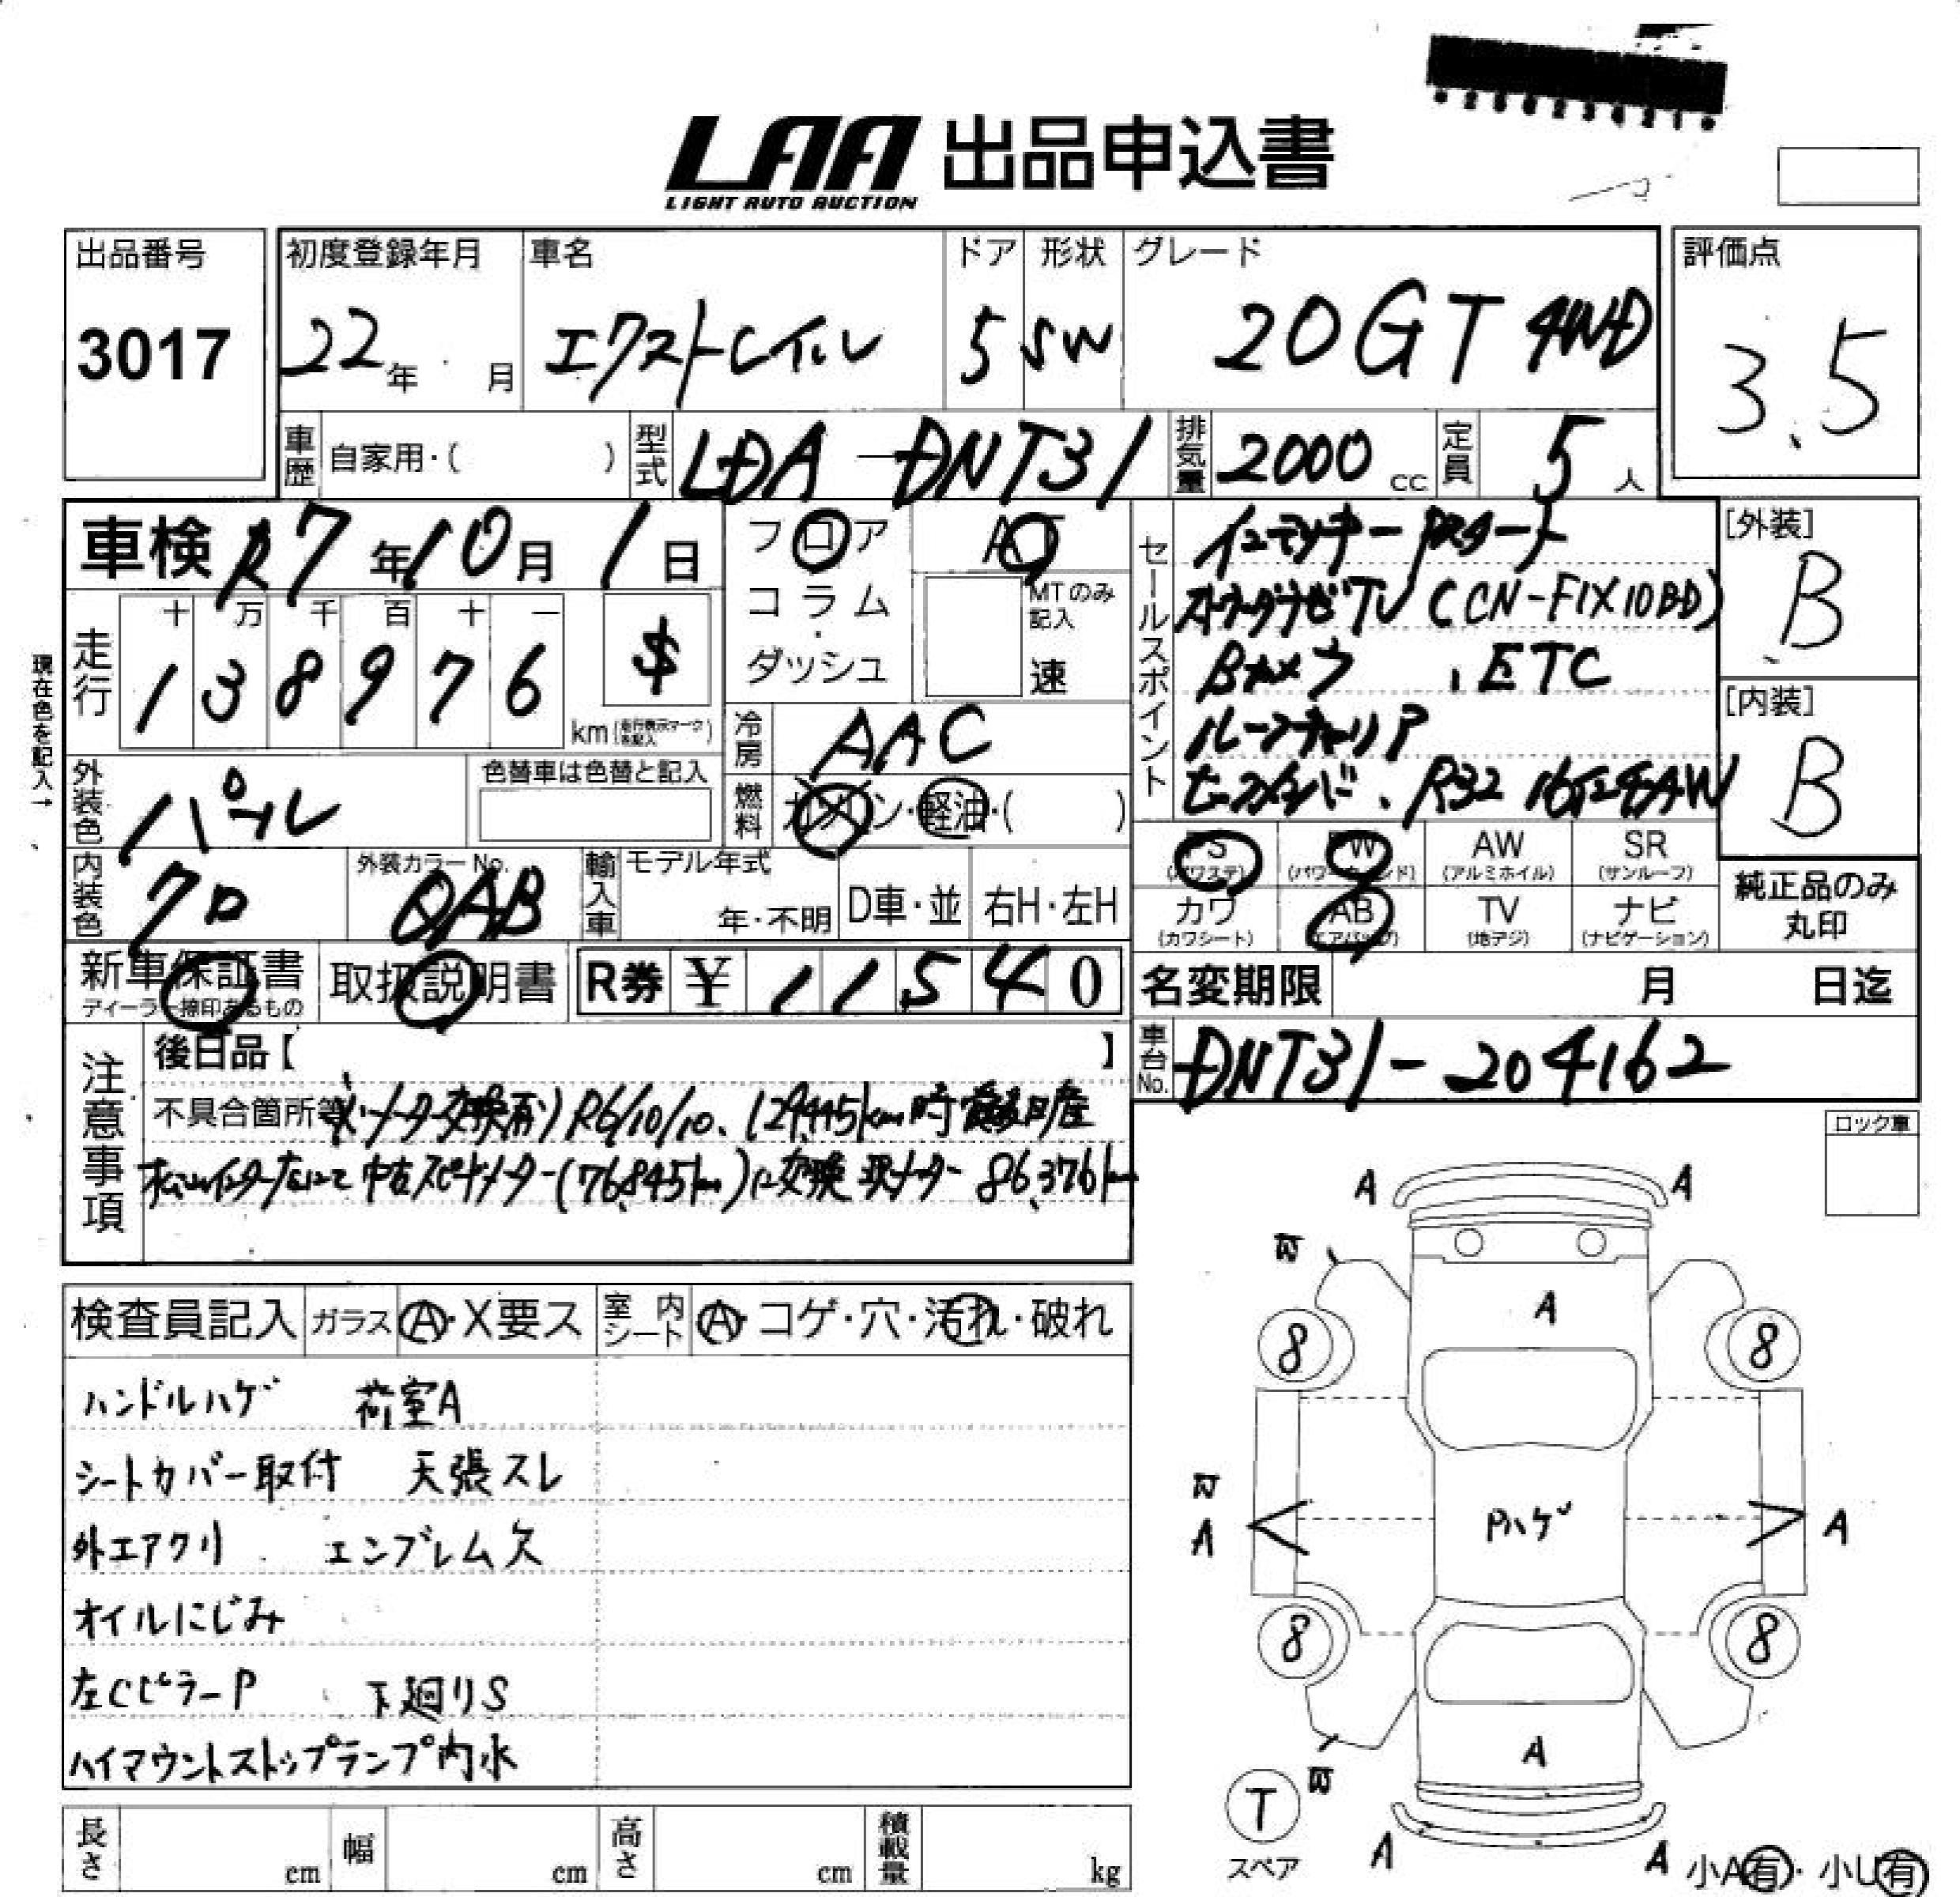 LAA 出品申込書
LIGHT AUTO AUCTION
出品番号
3017
初度登録年月
22年 月
車名
エクストレイル
ドア
5
形状
SW
グレード
20GT 4WD
評価点
3.5
車歴 自家用・( )
型式 LDA-DNT31
排気量 2000 cc
定員 5 人
車検 R7年10月1日
フロア
コラム
・
ダッシュ
AT
MTのみ記入
速
走行
十 万 千 百 十 一
1 3 8 9 7 6
km (走行表示マークを記入)
$
現在色を記入→
冷房 AAC
燃料 ガソリン・軽油・( )
外装色 パール
色替車は色替と記入
内装色 クロ
外装カラーNo.
QAB
輸入車
モデル年式
年・不明
D車・並
右H・左H
セールスポイント
インテリキー Pスタート
TV (CN-F1X10BD)
Bカメラ ETC
[外装]
B
[内装]
B
PS
(パワステ)
PW
(パワーウィンド)
AW
(アルミホイル)
SR
(サンルーフ)
カワ
(カワシート)
AB
(エアバッグ)
TV
(地デジ)
ナビ
(ナビゲーション)
純正品のみ
丸印
新車保証書
ディーラー捺印あるもの
取扱説明書
R券 ¥ 11540
名変期限 月 日迄
車台No. DNT31-204162
注意事項
後日品【 】
不具合箇所等 メーター交換有り R6/10/10、129,445km時 愛媛日産
松山インター店にて 中古スピードメーター(76,845km)に交換 現メーター 86,376km
ロック車
検査員記入 ガラス A・X要ス
室内シート A・コゲ・穴・汚れ・破れ
ハンドルハゲ 荷室A
シートカバー取付 天張スレ
外エアクリ エンブレム欠
オイルにじみ
左CピラーP 下廻りS
ハイマウントストップランプ内水
長さ cm
幅 cm
高さ cm
積載量 kg
A A
A
8 8
A
Pハゲ
A
8 8
A
T
スペア
A A
小A有・小U有